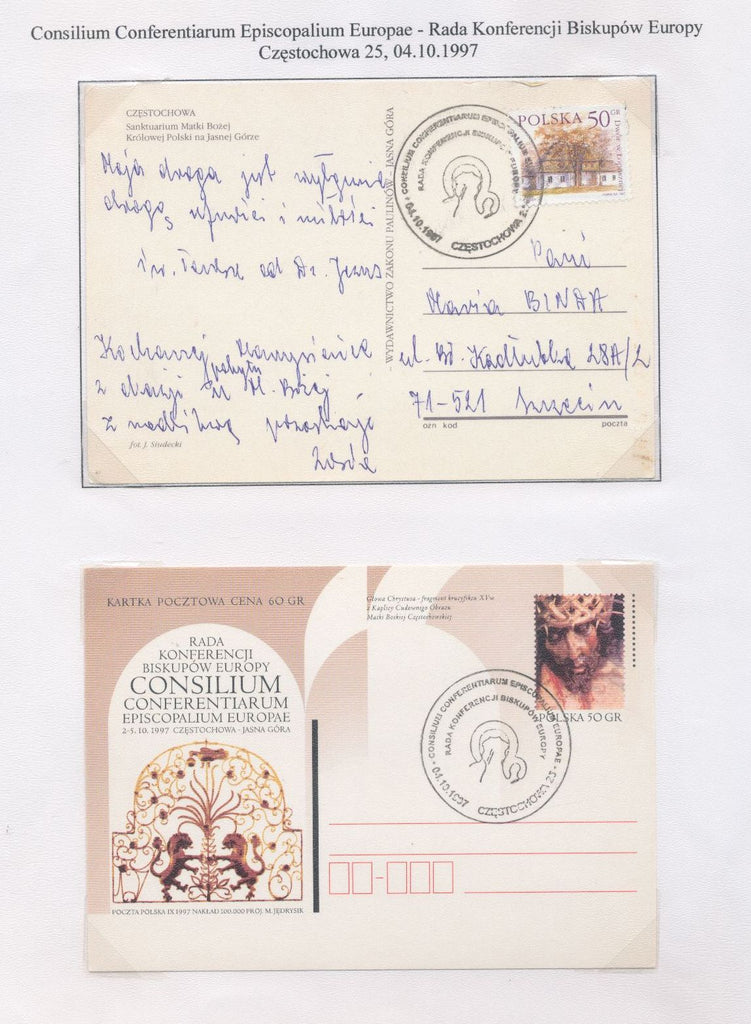 Consilium Conferentiarum Episcopalium Europae - Rada Konferencji Biskupów Europy
Częstochowa 25, 04.10.1997
CZĘSTOCHOWA
Sanktuarium Matki Bożej
Królowej Polski na Jasnej Górze
Moja droga jest wyłącznie
drogą ufności i miłości
św. Teresa od Dz. Jezus
Kochanej
z okazji M. Bożej
z modlitwą pozostaję
fot. J. Siudecki
WYDAWNICTWO ZAKONU PAULINÓW - JASNA GÓRA
POLSKA 50 GR
CONSILIUM CONFERENTIARUM EPISCOPALIUM
RADA KONFERENCJI BISKUPÓW EUROPY
04.10.1997 CZĘSTOCHOWA 25
Pani
Maria BINDA
28A/2
71-521 Szczecin
ozn kod poczta
KARTKA POCZTOWA CENA 60 GR
Głowa Chrystusa - fragment krucyfiksu XV w
z Kaplicy Cudownego Obrazu
Matki Boskiej Częstochowskiej
RADA
KONFERENCJI
BISKUPÓW EUROPY
CONSILIUM
CONFERENTIARUM
EPISCOPALIUM EUROPAE
2-5. 10. 1997 CZĘSTOCHOWA - JASNA GÓRA
POLSKA 50 GR
CONSILIUM CONFERENTIARUM EPISCOPALIUM EUROPAE
RADA KONFERENCJI BISKUPÓW EUROPY
04.10.1997 CZĘSTOCHOWA 25
POCZTA POLSKA IX 1997 NAKŁAD 100.000 PROJ. M. JĘDRYSIK